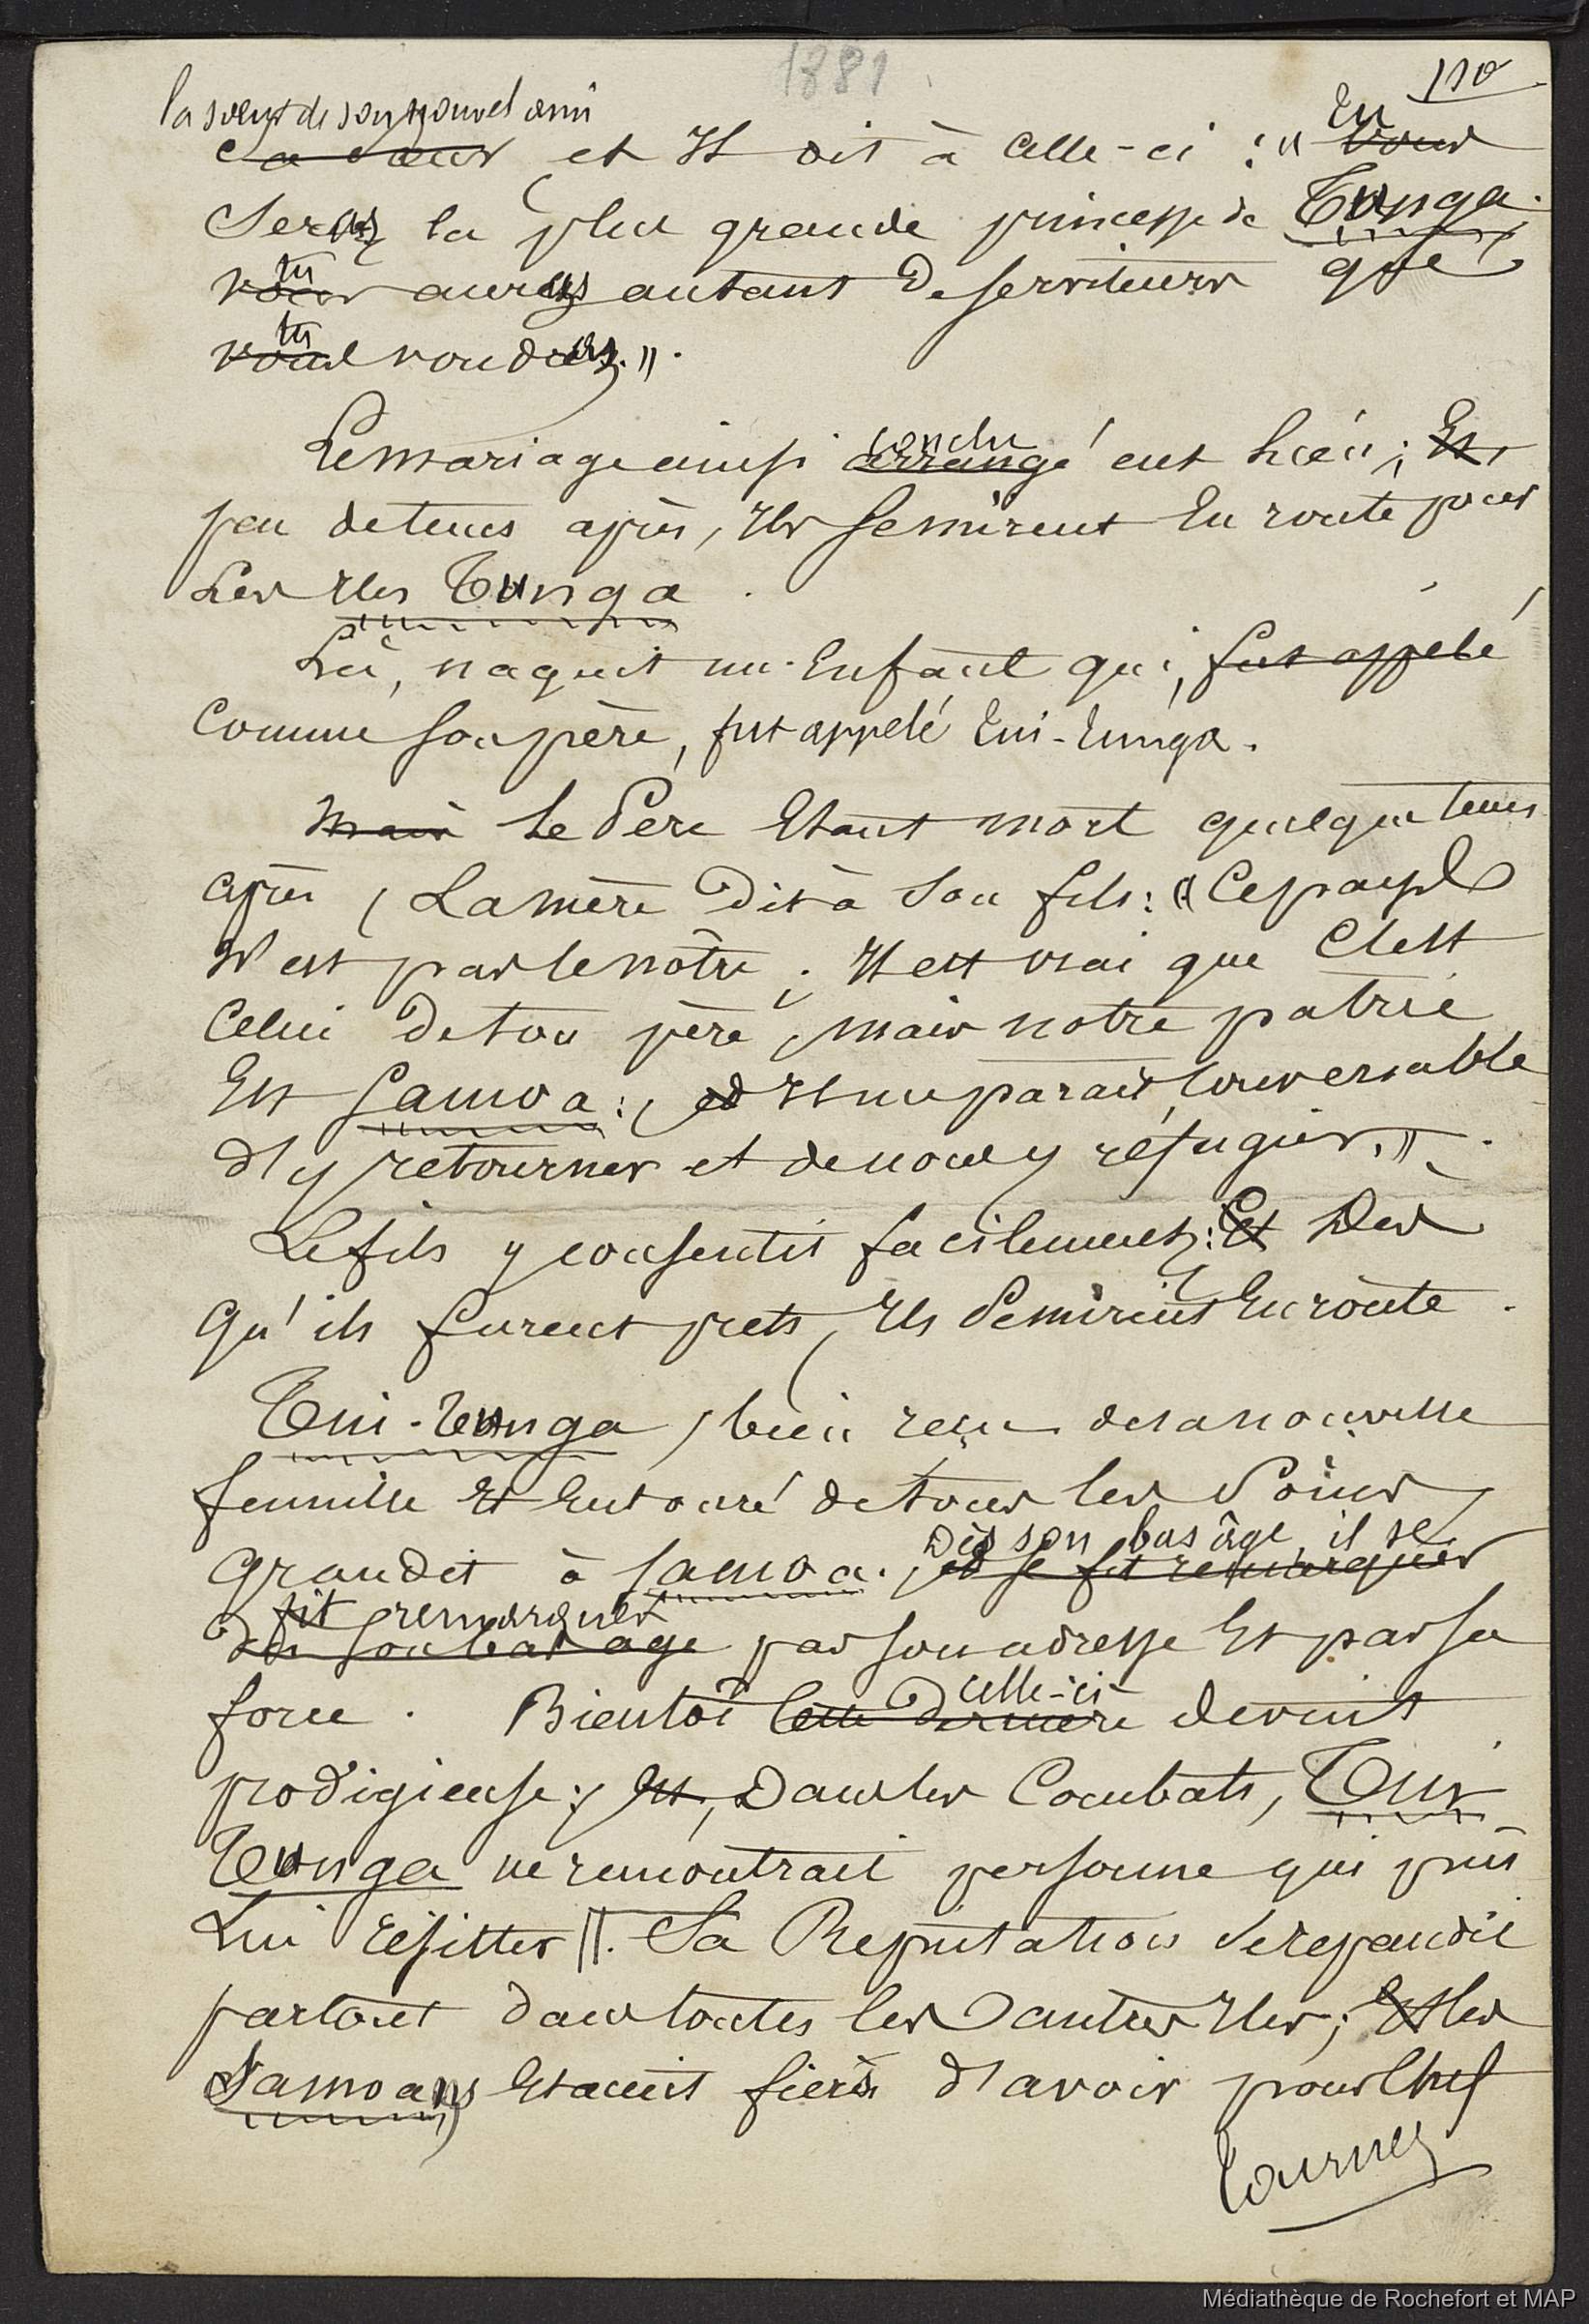 1881
110
la sœur de son nouvel ami Tu
sa sœur et Il dit à celle-ci : " Vous
Seras la plus grande princesse de Tunga.
tu
vous auras autant de serviteurs que
tu
vous voudras. ".
conclu
Le mariage ainsi arrangé eut lieu ; Et,
peu de tems après, Ils se mirent En route pour
Les Iles Tunga .
Là, naquit un Enfant qui, fut appelé
comme son père, fut appelé Tui-Tunga.
Mais Le Père Etant mort quelque tems
après, La mère dit à son fils : " Ce pays
N'est pas le nôtre ; Il est vrai que C'est
Celui de ton père, mais notre patrie
Est Samoa : et Il me parait convenable
d'y retourner et de nous y réfugier. ".
Le fils y consentit facilement ; Et Dès
Qu'ils furent prets, Ils Se mirent En route .
Tui-Tunga, bien reçu de sa nouvelle
famille Et Entouré de tous les Soins,
Dès son bas âge, il se
Grandit à Samoa. et se fit remarquer
fit remarquer
dès son bas age par son adresse Et par sa
celle-ci
force . Bientôt Cette Dernière devint
prodigieuse ; Et, Dans les Combats, Tui-
Tunga ne rencontrait personne qui put
Lui résister. Sa Réputation se repandit
partout dans toutes les Dautres Iles ; Et les
Samoans Etaient fiers d'avoir pour Chef
Tournez
Médiathèque de Rochefort et MAP